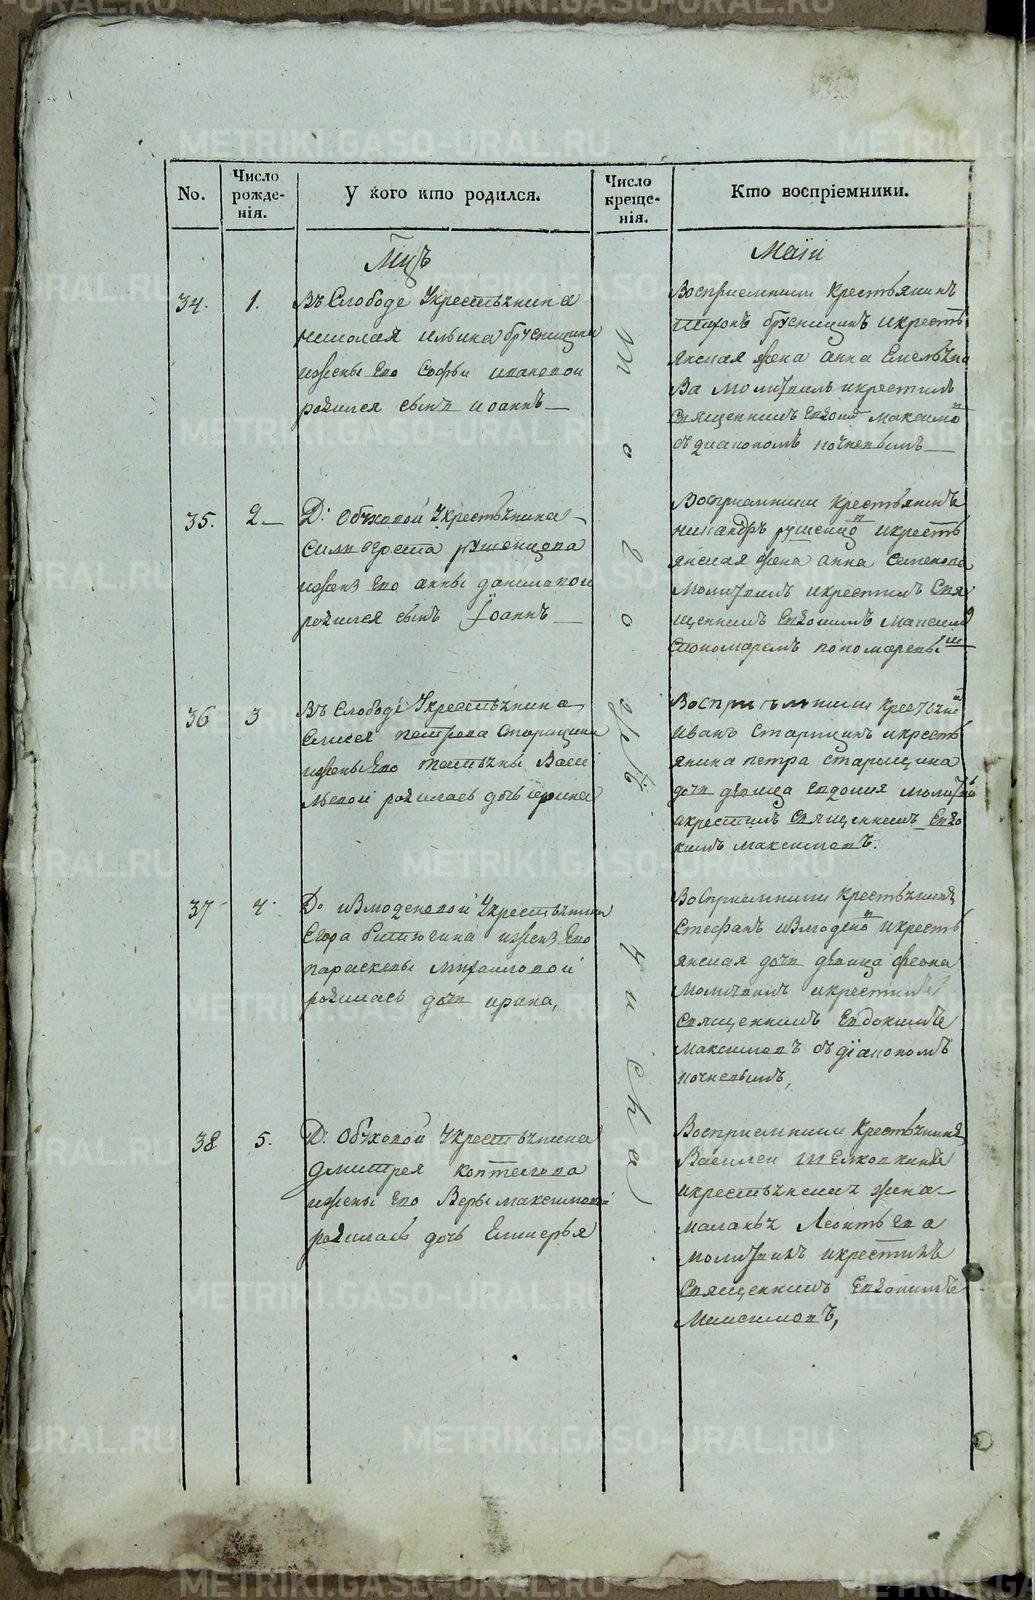 No.
Число рожденія.
У кого кто родился.
Число крещенія.
Кто воспріемники.
Мцъ
Маіи
34.
1.
Въ Слободе Укрестьянина
николая ильина брусницина
ижены Его Софьи ивановой
родился сынъ иоаннъ
Восприемники крестьянинъ
тихонъ брусницинъ икресть
янская жена анна Емельяно
ва молитвилъ икрестилъ
Священникъ Евдоким максимо
съ диакономъ
35.
2
Д: Обуховой Укрестьянина
Силивереста
ижены Его анны даниловой
родился сынъ Иоаннъ
Восприемники крестьянинъ
никандръ икресть
янская жена анна семенова
молитвилъ икрестилъ Свя
щенникъ Евдокимъ максимо
Спономаремъ пономаревы
36
3
Въ Слободе Укрестьянина
Елисея петрова Старицина
ижены Его татьяны Васи
льевой родилась дочь ирина
Восприемники крестьяни
Иванъ Старицинъ икресть
янина петра старицина
дочь девица Евдокия молитви
икрестилъ Священникъ Евдо
кимъ максимовъ.
37
4
Д: измоденовой Укрестьянина
Егора ижены Его
параскевы михаиловой
родилась дочь ирина,
Восприемники крестьянинъ
Стефанъ измодено икресть
янская дочь девица феона
молитвилъ икрестилъ
Священникъ Евдокимъ
максимовъ съ діакономъ
38
5.
Д: Обуховой Укрестьянина
дмитрея коптегова
ижены Его Веры максимовой
родилась дочь Гликерья
Восприемники крестьянинъ
Василеи
икрестьянская жена
маланья Леонтьева
молитвилъ икрестилъ
Священникъ Евдокимъ
Максимовъ,
Того же числа
METRIKI.GASO-URAL.RU